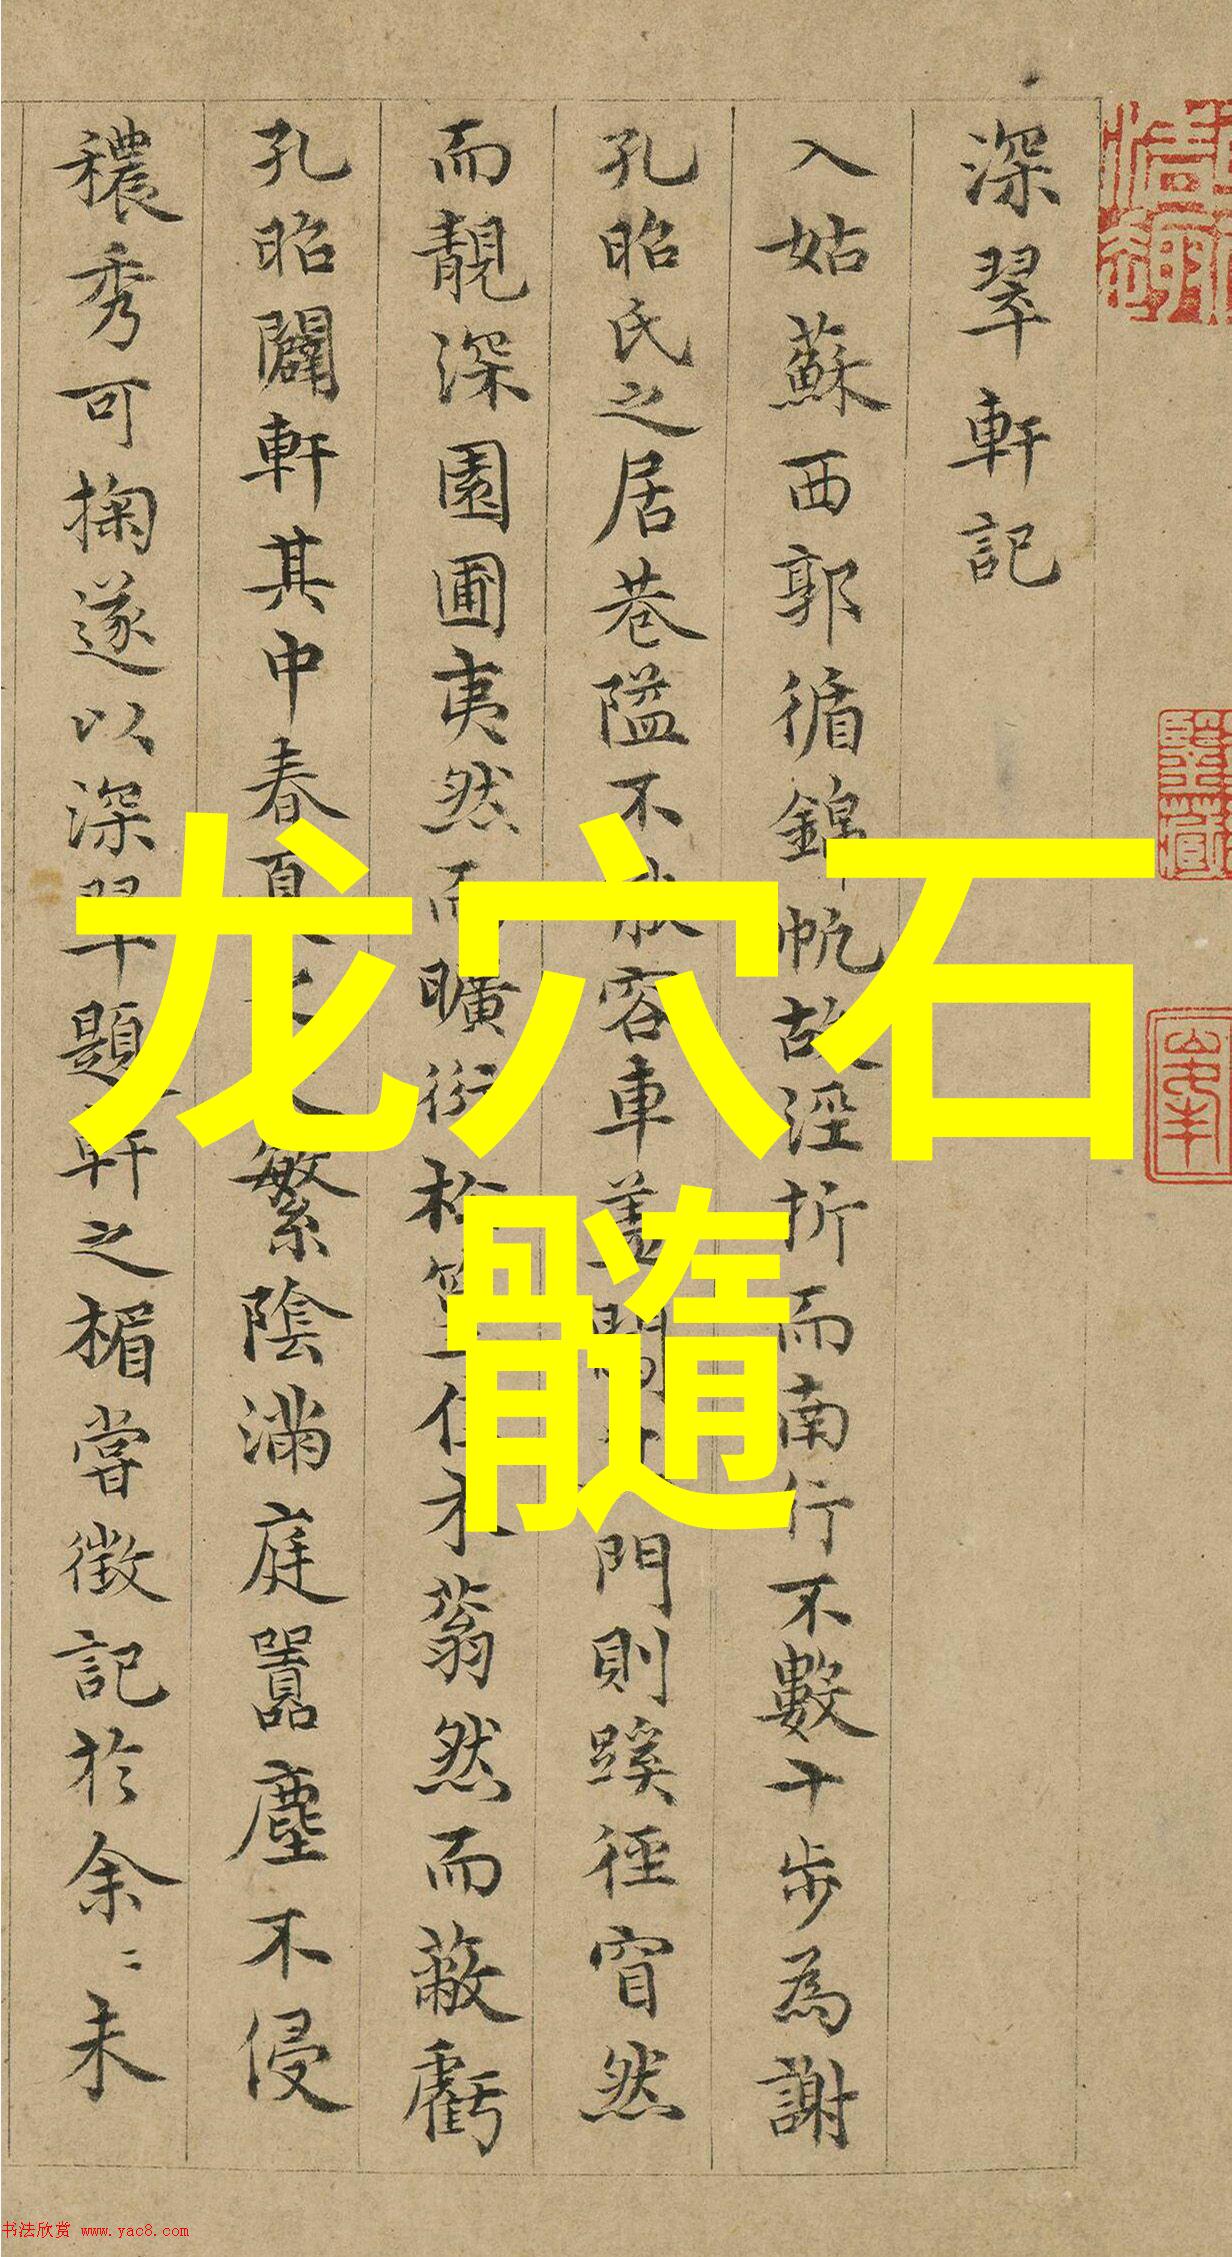 深翠軒記
入姑蘇西郭循錦帆故涇折而南行不數十步為謝
孔昭氏之居巷隘不容車門則蹊徑窅然
而靚深園圃夷然而曠衍松佳木蓊然而蔽虧
孔昭闢軒其中春夏之繁陰滿庭嚚塵不侵
穠秀可掬遂以深翠題軒之楣嘗徵記於余〻未
龙穴石
髓
书法欣赏 www.yac8.com